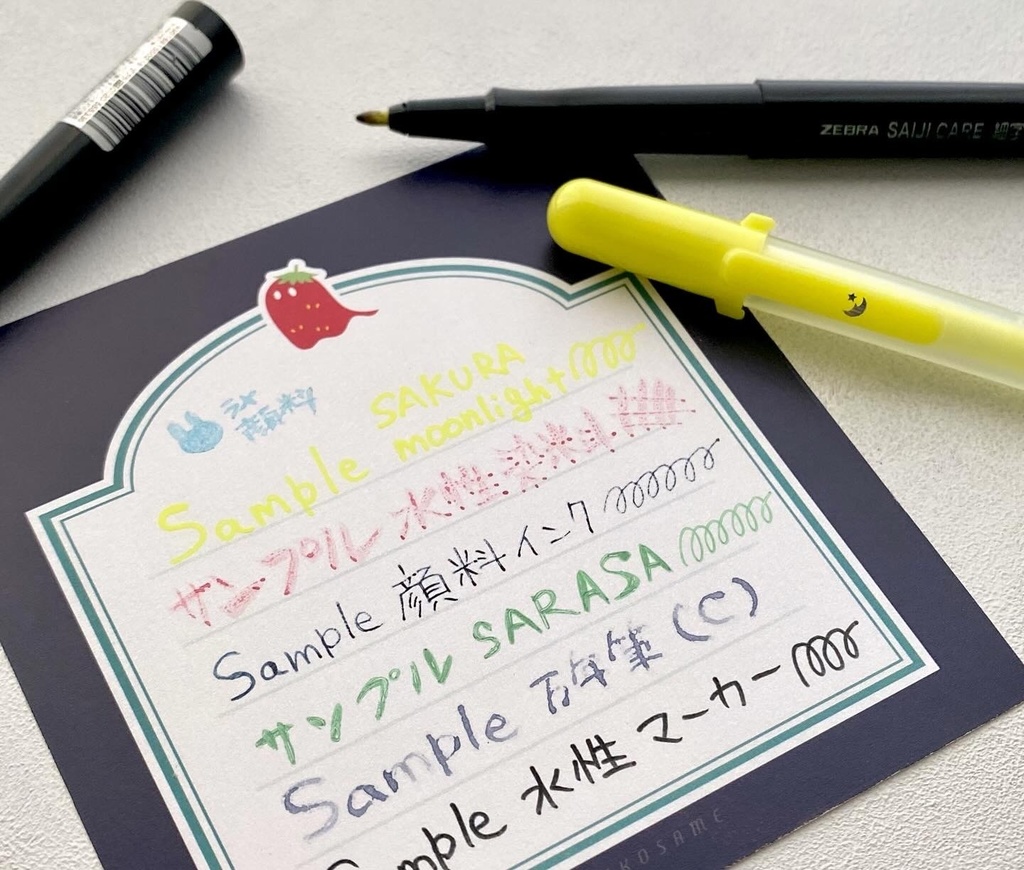 ZEBRA SAIJI CARE 細字
顔料
SAKURA
Sample moonlight
サンプル 水性染料
Sample 顔料インク
サンプル SARASA
Sample 万年筆(C)
Sample 水性 マーカー
KOSAME